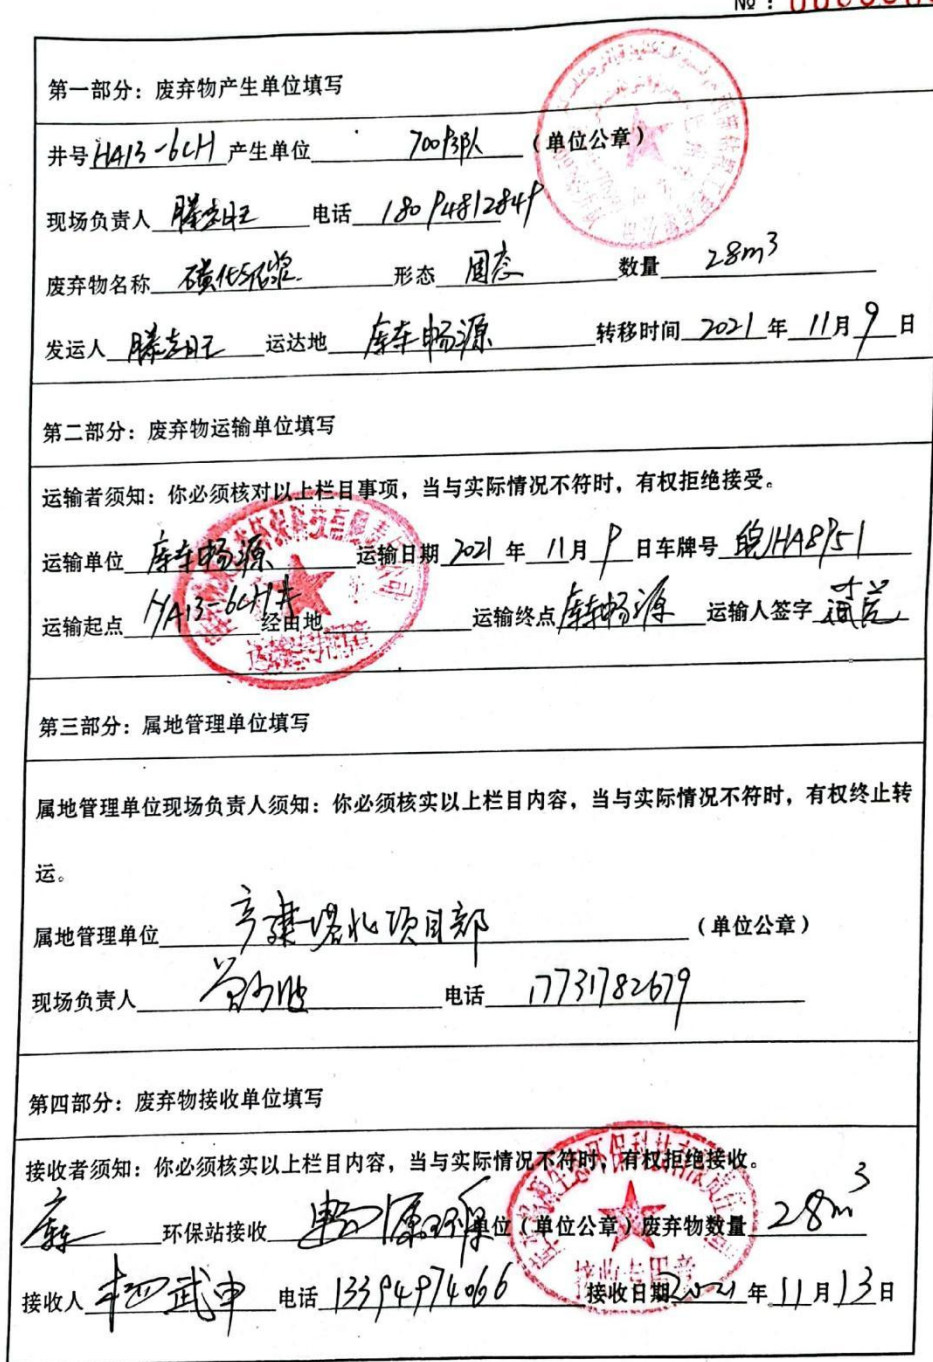 №：
第一部分：废弃物产生单位填写
井号 HA13-6CH 产生单位 70093队 （单位公章）
现场负责人 滕志旺 电话 18094812849
废弃物名称 磺化泥浆 形态 固态 数量 28m³
发运人 滕志旺 运达地 库车畅源 转移时间 2021 年 11 月 9 日
第二部分：废弃物运输单位填写
运输者须知：你必须核对以上栏目事项，当与实际情况不符时，有权拒绝接受。
运输单位 库车畅源 运输日期 2021 年 11 月 9 日车牌号 皖HA8951
运输起点 HA13-6CH井 经由地 运输终点 库车畅源 运输人签字
第三部分：属地管理单位填写
属地管理单位现场负责人须知：你必须核实以上栏目内容，当与实际情况不符时，有权终止转
运。
属地管理单位 塔北项目部 （单位公章）
现场负责人 电话 17731782679
第四部分：废弃物接收单位填写
接收者须知：你必须核实以上栏目内容，当与实际情况不符时，有权拒绝接收。
库车 环保站接收 畅源环保 单位（单位公章）废弃物数量 28m³
接收人 电话 13394974066 接收日期 2021 年 11 月 13 日
接收专用章